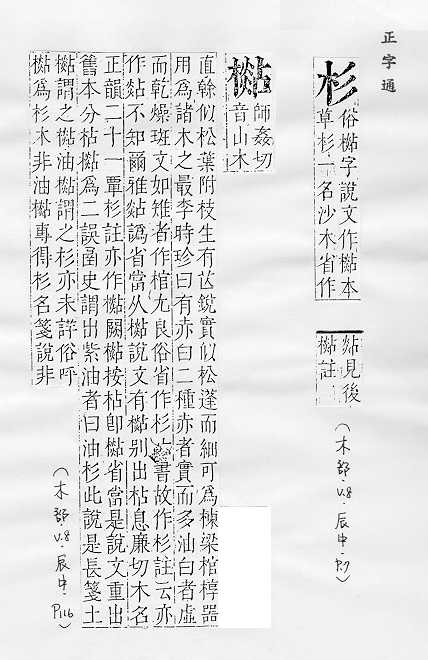 正字通
杉
俗㯳字說文作㯳本
草杉一名沙木省作
煔見後
㯳註
(木部.V.8 辰中.P.7)
㯳
師姦切
音山木
直榦似松葉附枝生有芒銳實似松蓬而細可爲棟梁棺椁器
用爲諸木之最李時珍曰有赤白二種赤者實而多油白者虛
而乾燥斑文如雉者作棺尤良俗省作杉 書故作杉註云亦
作煔不知爾雅煔譌省當从㯳說文有㯳別出枮息廉切木名
正韻二十一覃杉註亦作㯳闕㯳按枮卽㯳省當是說文重出
舊本分枮㯳爲二誤函史謂出紫油者曰油杉此說是長箋土
㯳謂之㯳油㯳謂之杉亦未詳俗呼
㯳爲杉木非油㯳專得杉名箋說非
(木部.V.8.辰中.P116)